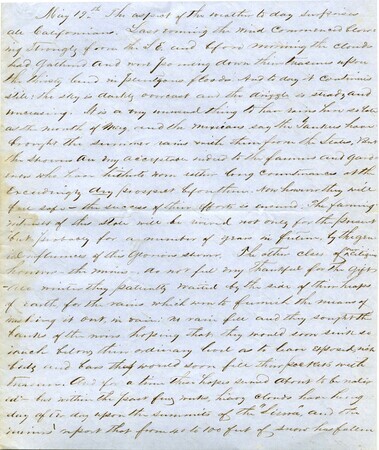 May 19th The aspect of the weather to day surprises
all Californians. Last evening the wind commenced blow
ing strongly from the S.E. and before morning the clouds
had gathered and were pouring down their treasures upon
the thirsty land in plenteous floods. And to day it continues
still: the sky is darkly overcast and the drizzle is steady and
increasing. It is a very unusual thing to have rains here so late
as the month of May, and the Mexicans say the Yankees have
brought the summer rains with them from the States. But
the showers are very acceptable indeed to the farmers and gard
eners who have hitherto worn rather long countenances at the
exceedingly dry prospect before them. Now however they will
feel safe as the success of their efforts is insured. The farming
interest of this state will be
but probably for a number of years in future, by the gen
ial influences of this glorious shower. The other class of
however the miners do not feel very thankful for the gift.
All winter they patiently waited by the side of their heaps
of earth for the rains which were to furnish the means of
washing it out, in vain: no rain fell and they sought the
banks of the rivers hoping that they would soon sink so
much below their ordinary level as to leave exposed, rich
beds and bars that would soon fill their pockets with
treasure. And for a time their hopes seemed about to be realiz
ed but within the past few weeks, heavy clouds have hung
day after day upon the summits of the "Sierra", and the
miners report that from 40 to 100 feet of snow has fallen